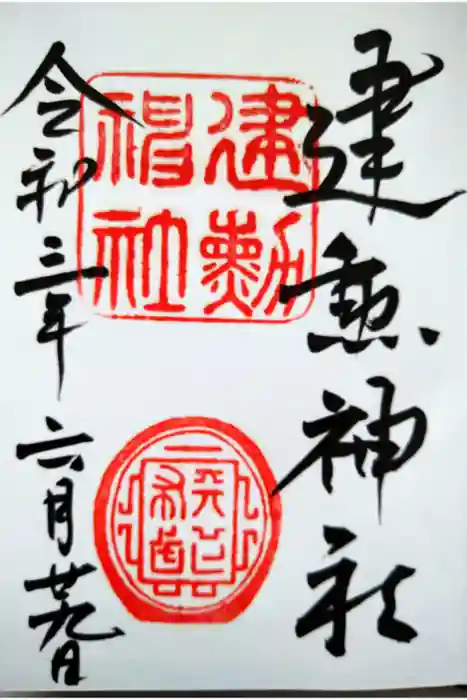 建勲神社
建勲
神社
令和三年六月廿九日